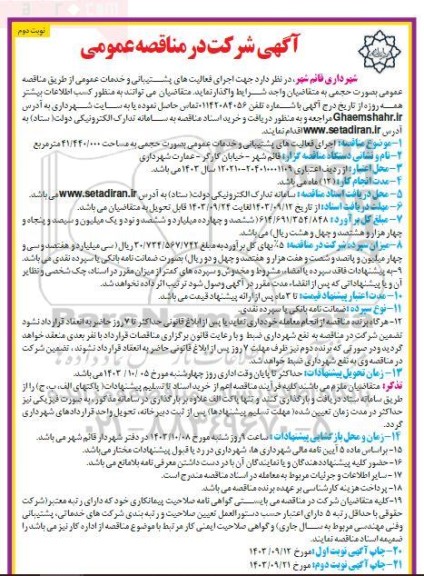 نوبت دوم
آگهی شرکت در مناقصه عمومی
شهرداری قائم شهر، در نظر دارد جهت اجرای فعالیت های پشتیبانی و خدمات عمومی از طریق مناقصه
عمومی بصورت حجمی به متقاضیان واجد شرایط واگذار نماید. متقاضیان می توانند به منظور کسب اطلاعات بیشتر
همه روزه از تاریخ درج آگهی با شماره تلفن ۰۱۱۴۲۰۸۴۰۵۶ تماس حاصل نموده یا به سایت شهرداری به آدرس
Ghaemshahr.ir مراجعه و به منظور دریافت و خرید اسناد مناقصه به سامانه تدارک الکترونیکی دولت( ستاد) به
آدرس www.setadiran.ir اقدام نمایند.
۱-موضوع مناقصه: اجرای فعالیت های پشتیبانی و خدمات عمومی بصورت حجمی به مساحت ۴۱/۴۴۰/۰۰۰ مترمربع
۲-نام و نشانی دستگاه مناقصه گزار: قائم شهر -خیابان کارگر - عمارت شهرداری
۳-محل اعتبار: از ردیف اعتباری سال ۱۴۰۳ می باشد.
۴-مدت انجام کار: (۱۲) ماه می باشد.
۵-محل دریافت اسناد مناقصه: سامانه تدارک الکترونیکی دولت( ستاد) به آدرس www.setadiran.ir می باشد.
۶-مهلت دریافت اسناد: از تاریخ ۱۴۰۳/۰۹/۱۲ لغایت ۱۴۰۳/۰۹/۲۴ قابل تحویل به متقاضیان می باشد.
۷-مبلغ کل برآورد: ۶۱۴/۶۹۱/۳۵۴/۸۴۸ (ششصد و چهارده میلیارد و ششصد و نود و یک میلیون و سیصد و پنجاه و
چهار هزار و هشتصد و چهل و هشت ریال) می باشد.
۸-میزان سپرده شرکت در مناقصه: ۵٪ بهای کل برآورد به مبلغ ۳۰/۷۳۴/۵۶۷/۷۴۲ ریال (سی میلیارد و هفتصد و سی و
چهار میلیون و پانصد و شصت و هفت هزار و هفتصد و چهل و دو ریال) بصورت ضمانت نامه بانکی یا سپرده نقدی می باشد.
۹-به پیشنهادات فاقد سپرده یا امضاء، مشروط و مخدوش و سپرده های کمتر از میزان مقرر در اسناد، چک شخصی و نظایر
آن و یا پیشنهاداتی که پس از انقضاء مدت مقرر در آگهی وصول شود ترتیب اثر داده نخواهد شد.
۱۰-مدت اعتبار پیشنهاد قیمت: تا ۳ ماه پس از ارائه پیشنهاد قیمت می باشد.
۱۱-نوع سپرده: ضمانت نامه بانکی یا سپرده نقدی.
۱۲-هرگاه برنده مناقصه از انجام معامله خودداری نماید یا پس از ابلاغ قانونی حداکثر تا ۷ روز حاضر به انعقاد قرارداد نشود
تضمین شرکت در مناقصه به نفع شهرداری ضبط و با رعایت قانون برگزاری مناقصات قرارداد با نفر بعدی منعقد خواهد
گردید و در صورتی که برنده دوم نیز ظرف مهلت ۷ روز پس از ابلاغ قانونی حاضر به انعقاد قرارداد نشود، تضمین شرکت
در مناقصه وی به نفع شهرداری ضبط خواهد شد.
۱۳-زمان تحویل پیشنهادات: حداکثر تا پایان وقت اداری روز چهارشنبه مورخ ۱۴۰۳/۱۰/۰۵ می باشد.
تذکر: متقاضیان ملزم می باشند کلیه فرآیند مناقصه اعم از خرید اسناد تا تسلیم پیشنهادات( پاکتهای الف، ب، ج) را از
طریق سامانه ستاد دریافت و بارگذاری کنند و تنها پاکت الف علاوه بر بارگذاری در سامانه مذکور، به صورت فیزیکی نیز
حداکثر در مدت زمان تعیین شده( مهلت تسلیم پیشنهادها) پس از ثبت دبیرخانه، تحویل واحد قراردادهای شهرداری
گردد.
۱۴-زمان و محل بازگشایی پیشنهادات: ساعت ۹ روز شنبه مورخ ۱۴۰۳/۱۰/۰۸ در دفتر شهردار قائم شهر می باشد.
۱۵-براساس ماده ۵ آیین نامه مالی شهرداری ها، شهرداری در رد یا قبول پیشنهادات مختار می باشد.
۱۶-حضور کلیه پیشنهاددهندگان و یا نمایندگان آن با در دست داشتن معرفی نامه بلامانع می باشد.
۱۷-سایر اطلاعات و جزئیات مربوط به معامله در اسناد مناقصه مندرج است.
۱۸-پرداخت هزینه کارشناسی بر عهده برنده مناقصه می باشد.
۱۹-کلیه متقاضیان شرکت در مناقصه می بایستی گواهی نامه صلاحیت پیمانکاری خود که دارای رتبه معتبر(شرکت
حقوقی با حداقل رتبه ۵ دارای اعتبار حسب دستورالعمل تعیین صلاحیت و رتبه بندی شرکت های خدماتی، پشتیبانی
وفنی مهندسی مربوط به سال جاری) و گواهی صلاحیت ایمنی کار مرتبط با موضوع مناقصه از اداره کار نیز می باشد را
ضمیمه اسناد مناقصه نمایند.
۲۰-چاپ آگهی نوبت اول: مورخ ۱۴۰۳/۰۹/۱۲
۲۱-چاپ آگهی نوبت دوم: مورخ ۱۴۰۳/۰۹/۲۱